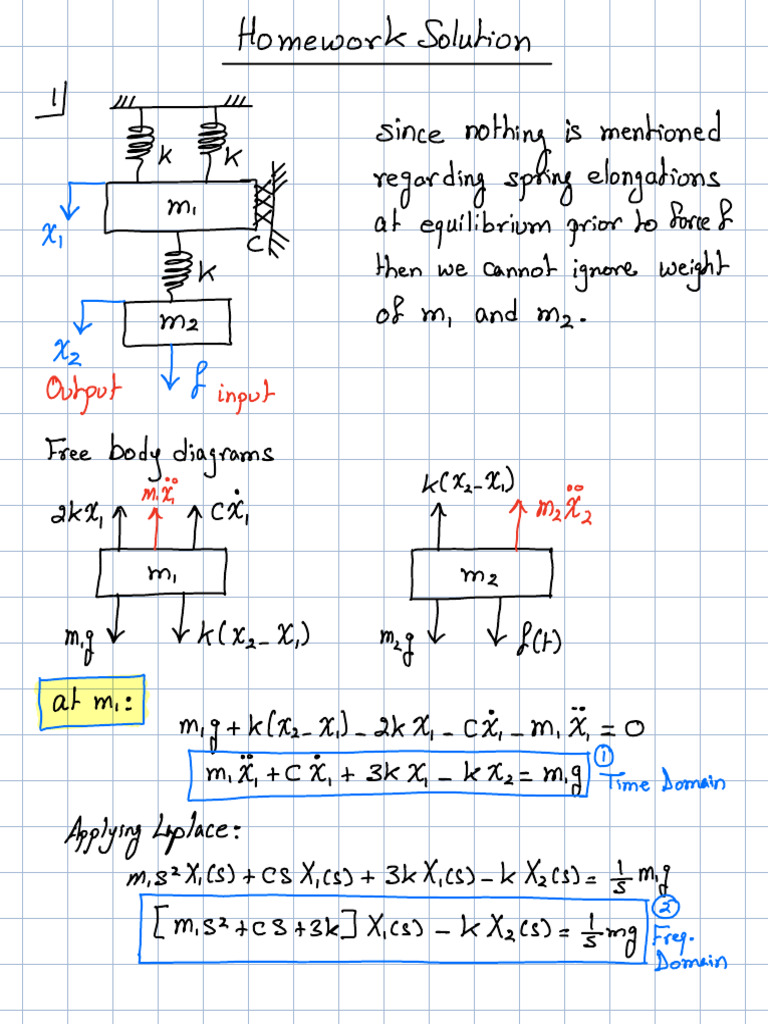 Homework Solution
1)
k
k
m₁
x₁
C
k
m₂
x₂
f
Output
input
since nothing is mentioned
regarding spring elongations
at equilibrium prior to force f
then we cannot ignore weight
of m₁ and m₂.
Free body diagrams
2kx₁
m₁ẍ₁
Cẋ₁
m₁
m₁g
k(x₂-x₁)
k(x₂-x₁)
m₂ẍ₂
m₂
m₂g
f(t)
at m₁:
m₁g + k(x₂-x₁) - 2kx₁ - Cẋ₁ - m₁ẍ₁ = 0
m₁ẍ₁ + Cẋ₁ + 3kx₁ - kx₂ = m₁g
①
Time Domain
Applying Laplace:
m₁s²X₁(s) + CsX₁(s) + 3kX₁(s) - kX₂(s) = 1/s m₁g
[m₁s² + Cs + 3k] X₁(s) - kX₂(s) = 1/s mg
②
Freq.
Domain